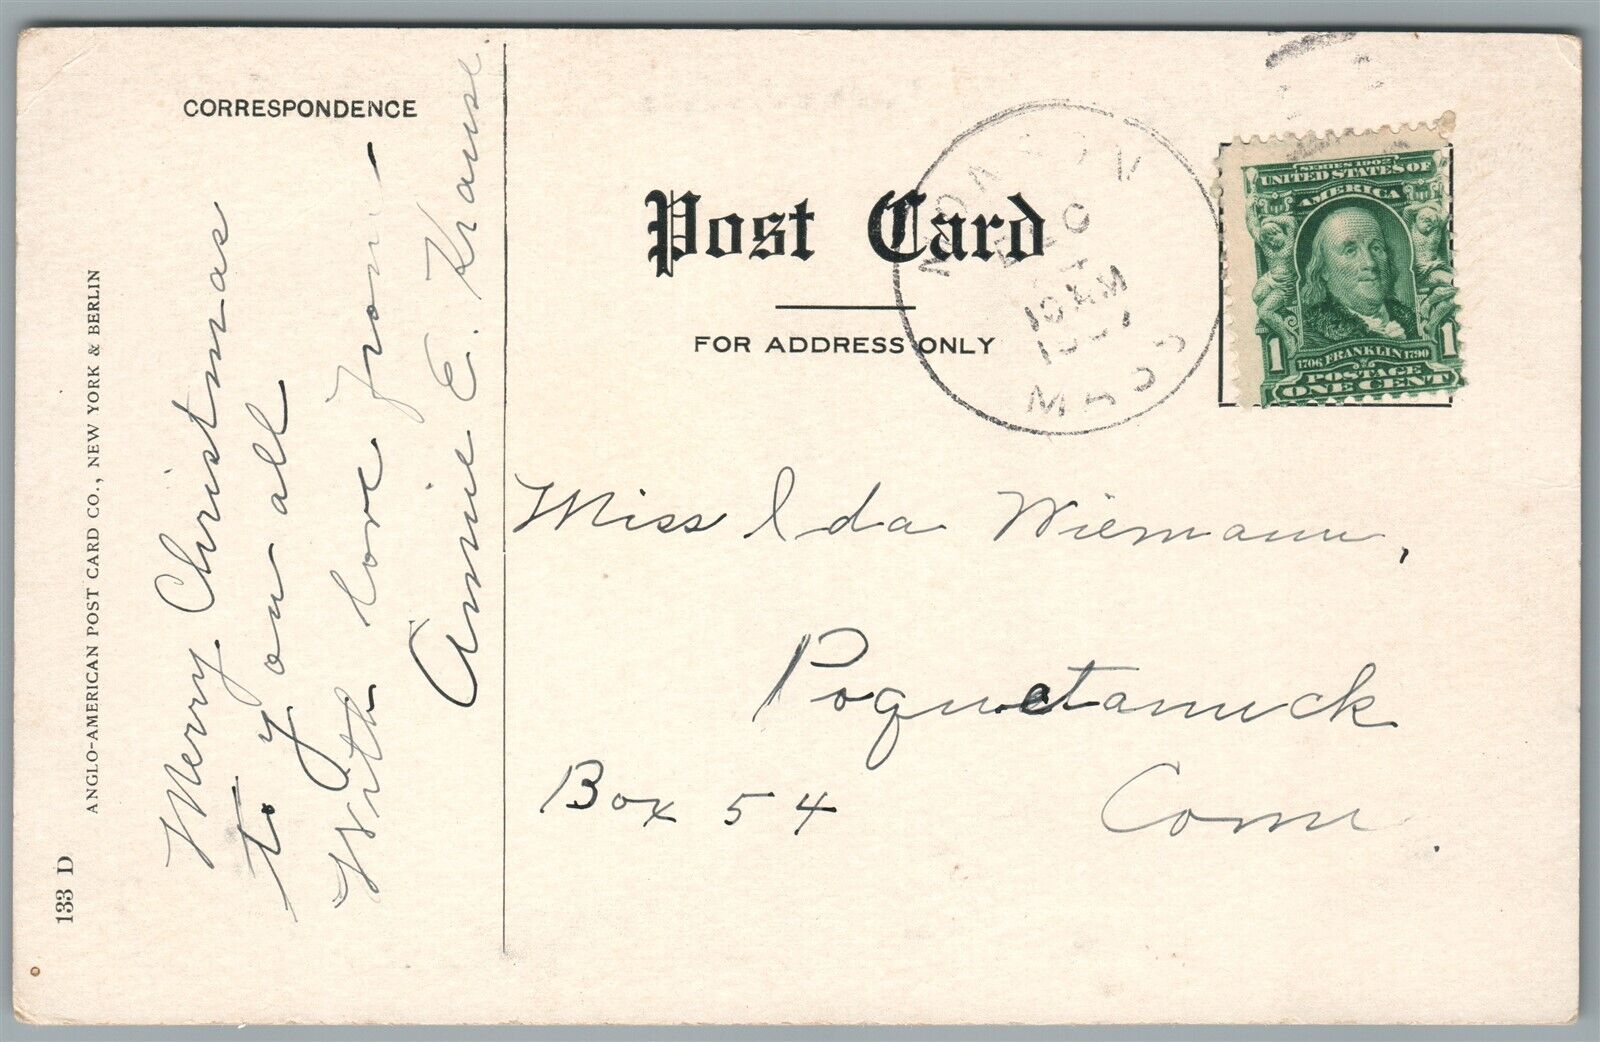 CORRESPONDENCE
Merry Christmas
to you all
With love from -
Annie E. Krause.
ANGLO-AMERICAN POST CARD CO., NEW YORK & BERLIN
133 D
Post Card
FOR ADDRESS ONLY
MONSON
DEC
10 AM
MASS
SERIES 1902
UNITED STATES OF
AMERICA
1 1
1706 FRANKLIN 1790
POSTAGE
ONE CENT
Miss Ida Wiemann,
Poquetanuck
Box 54 Conn.